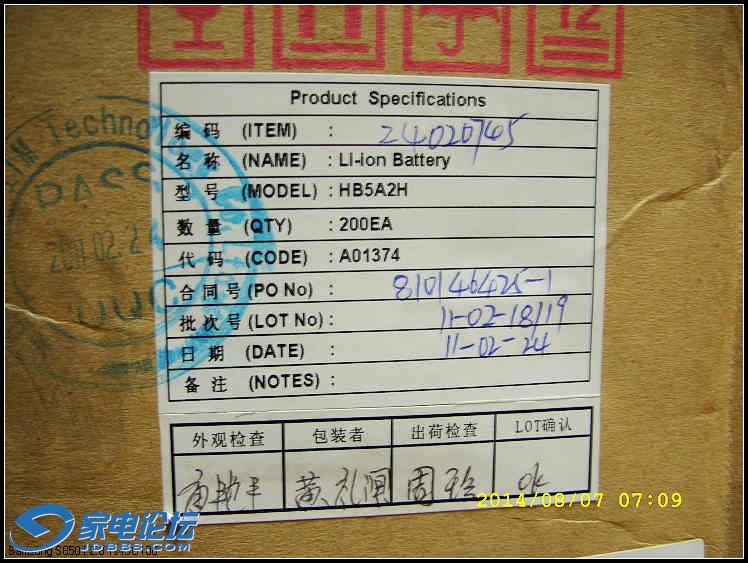 12
Product Specifications
编 码 (ITEM) : 24020745
名 称 (NAME) : Li-ion Battery
型 号 (MODEL) : HB5A2H
数 量 (QTY) : 200EA
代 码 (CODE) : A01374
合同号 (PO No) : 810146425-1
批次号 (LOT No) : 11-02-18/19
日 期 (DATE) : 11-02-24
备 注 (NOTES) :
外观检查 包装者 出荷检查 LOT确认
ok
Technology
PASS
2011.02.24
2014/08/07 07:09
家电论坛
JDBBS.COM